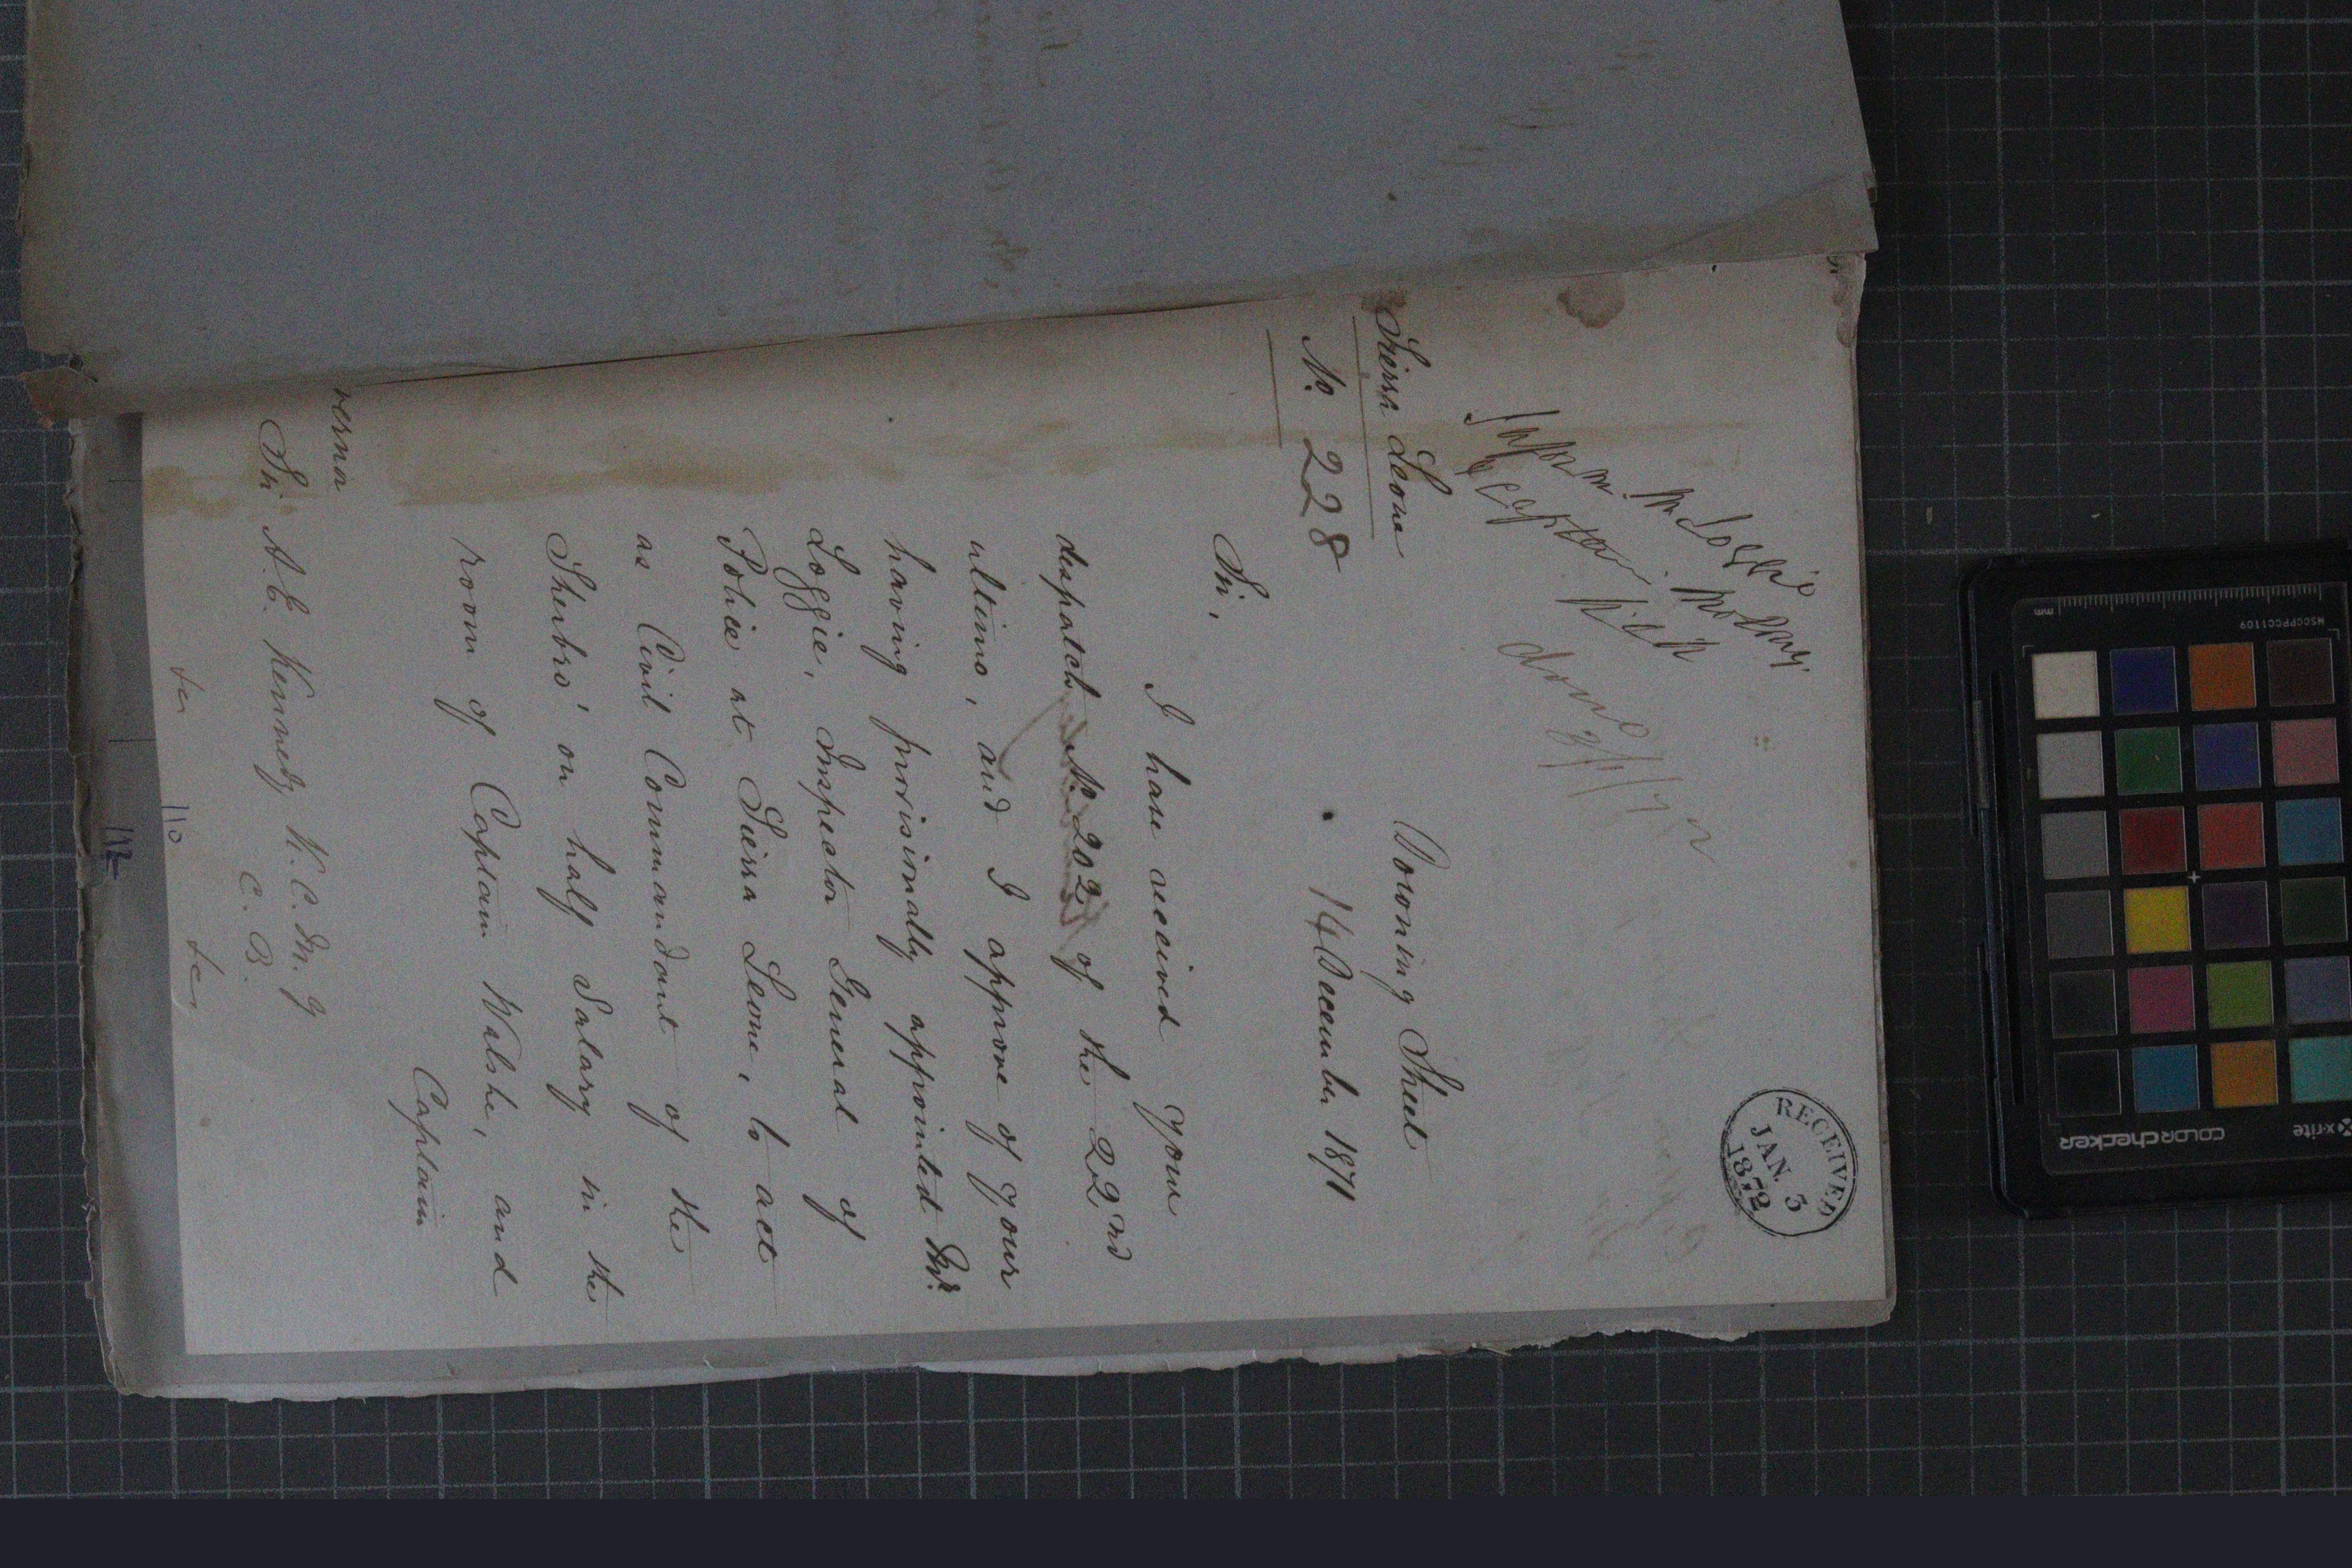 RECEIVED
JAN. 3
1872
Inform Mr Loggie
& Captain Moloney.
done
Sierra Leone
No. 228
Downing Street
14 December 1871
Sir,
I have received your
despatch No 202 of the 22nd
ultimo, and I approve of your
having provisionally appointed Mr.
Loggie, Inspector General of
Police at Sierra Leone, to act
as Civil Commandant of the
Sherbro' on half Salary in the
room of Captain Walshe, and
Captain
vernor
Sir A. E. Kennedy K. C. M. G
C. B.
110
112
MSCCPPCC1109
mm
x-rite
COLORchecker